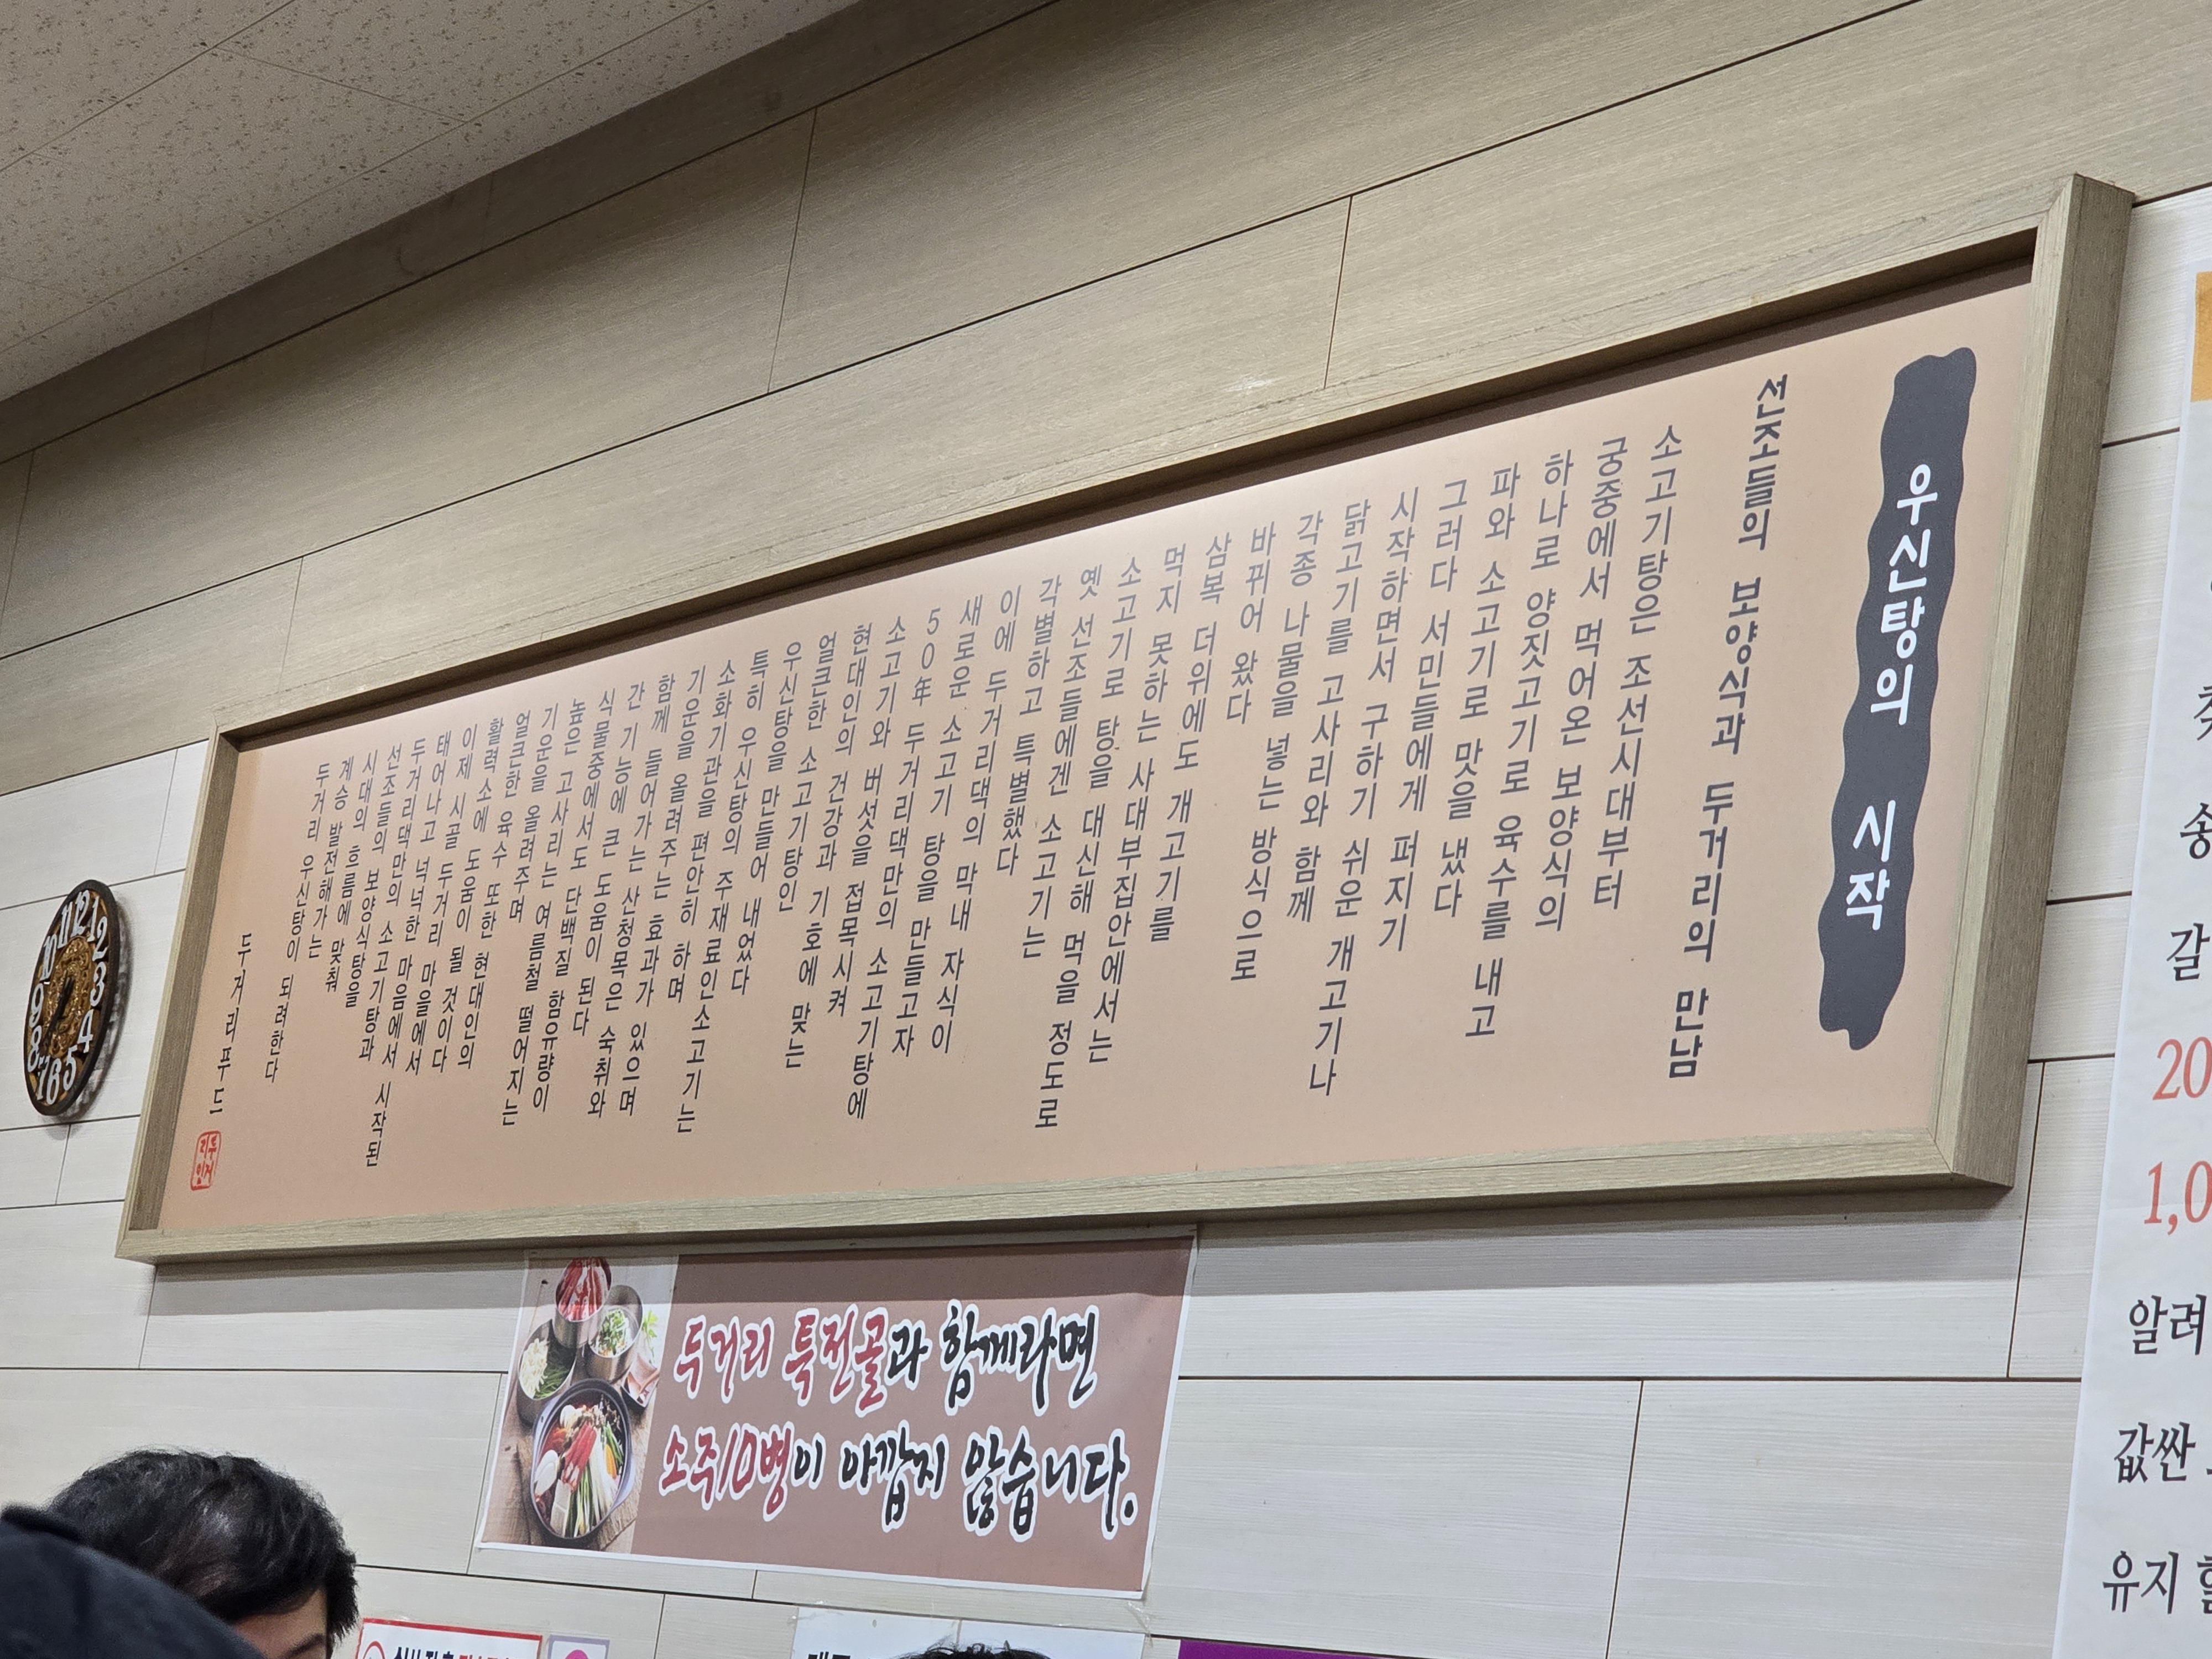 우신탕의 시작
선조들의 보양식과 두거리의 만남
소고기탕은 조선시대부터
궁중에서 먹어온 보양식의
하나로 양짓고기로 육수를 내고
파와 소고기로 맛을 냈다
그러다 서민들에게 퍼지기
시작하면서 구하기 쉬운 개고기나
닭고기를 고사리와 함께
각종 나물을 넣는 방식으로
바뀌어 왔다
삼복 더위에도 개고기를
먹지 못하는 사대부집안에서는
소고기로 탕을 대신해 먹을 정도로
옛 선조들에겐 소고기는
각별하고 특별했다
이에 두거리댁의 막내 자식이
새로운 소고기 탕을 만들고자
50年 두거리댁만의 소고기탕에
소고기와 버섯을 접목시켜
현대인의 건강과 기호에 맞는
얼큰한 소고기탕인
우신탕을 만들어 내었다
특히 우신탕의 주재료인소고기는
소화기관을 편안히 하며
기운을 올려주는 효과가 있으며
함께 들어가는 산청목은 숙취와
간 기능에 큰 도움이 된다
식물중에서도 단백질 함유량이
높은 고사리는 여름철 떨어지는
기운을 올려주며
얼큰한 육수 또한 현대인의
활력소에 도움이 될 것이다
이제 시골 두거리 마을에서
태어나고 넉넉한 마음에서 시작된
두거리댁만의 소고기탕과
선조들의 보양식탕을
시대의 흐름에 맞춰
계승 발전해가는
두거리 우신탕이 되려한다
두거리푸드
두거
리인
11 12 1 2 3 4 5 6 7 8 9 10
두거리 특전골과 함께라면
소주10병이 아깝지 않습니다.
갈
20
1,0
알려
값싼
유지